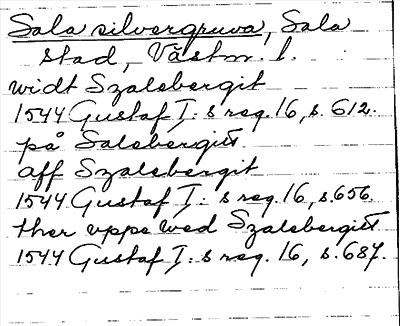 Sala silvergruva, Sala
stad, Västm. l.
widt Szalsbergit
1544 Gustaf I: s reg. 16, s. 612.
på Salsbergitt
aff Szalsbergit
1544 Gustaf I: s reg. 16, s. 656.
ther uppe wed Szalsbergitt
1544 Gustaf I: s reg. 16, s. 687.